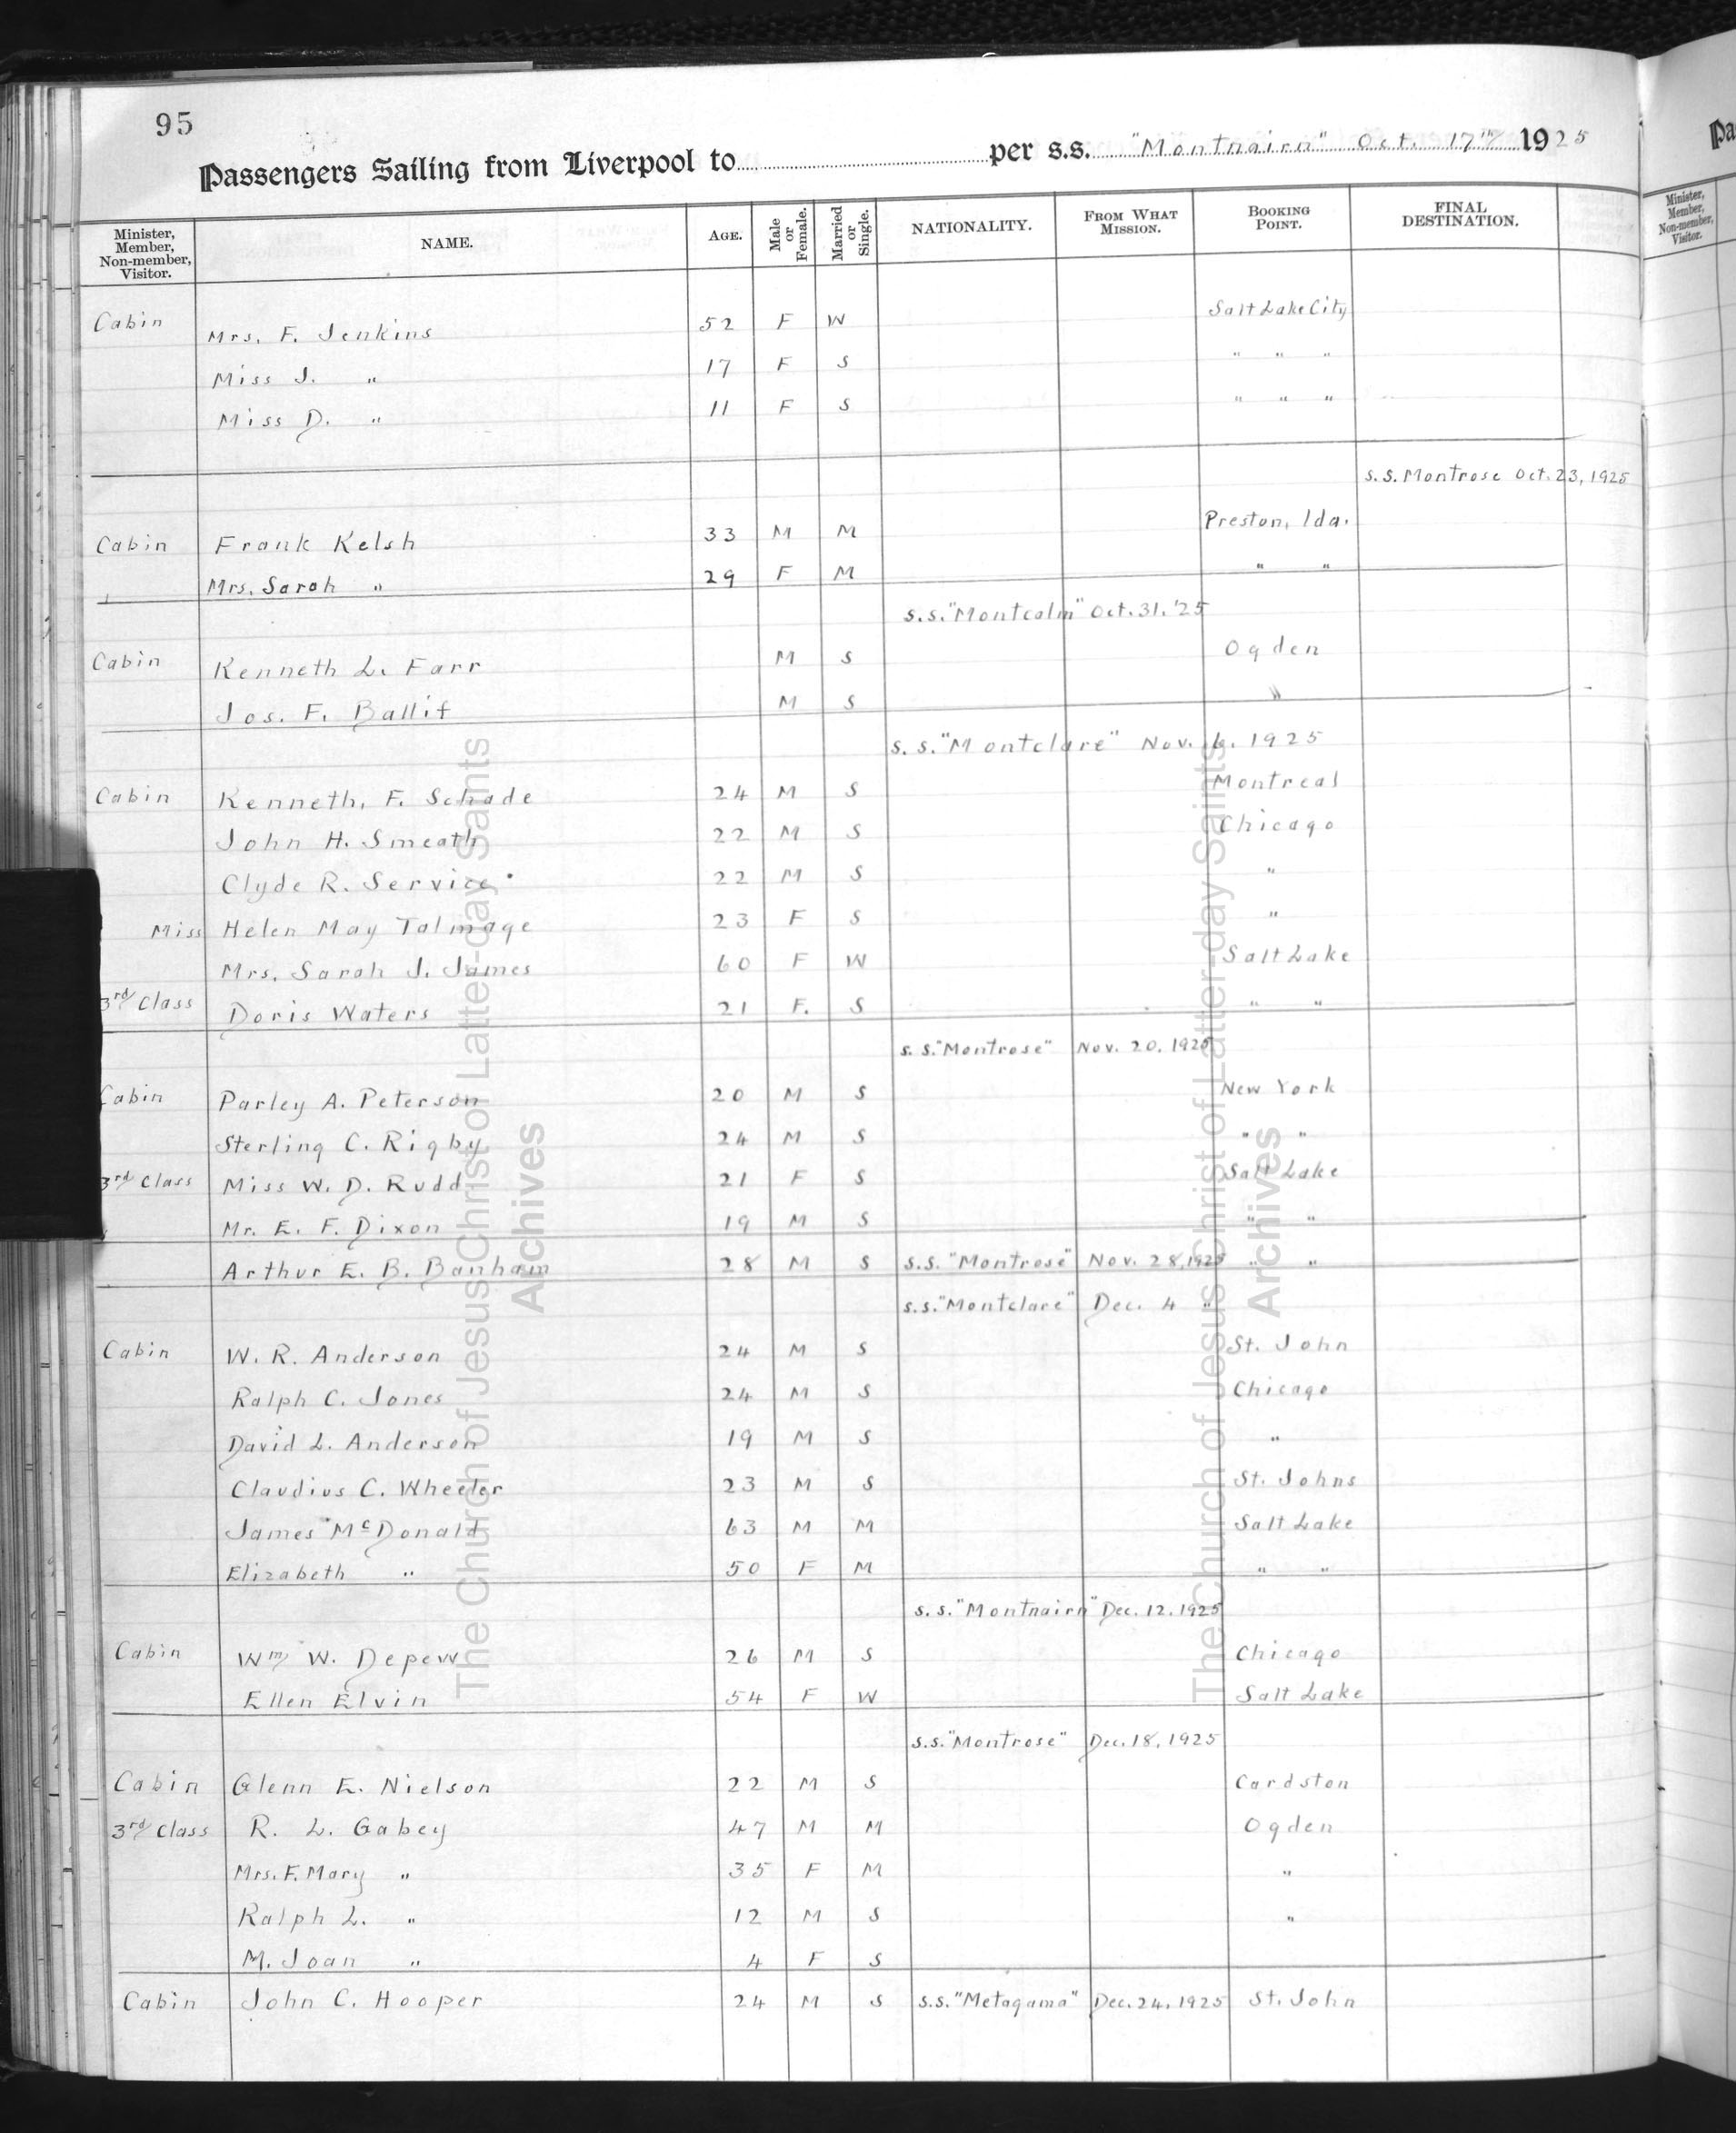 95
Passengers Sailing from Liverpool to per s.s. "Montnairn" Oct. 17th 1925
Minister, Member, Non-member, Visitor. NAME. AGE. Male or Female. Married or Single. NATIONALITY. FROM WHAT MISSION. BOOKING POINT. FINAL DESTINATION.
Cabin Mrs. F. Jenkins 52 F W Salt Lake City
Miss J. " 17 F S " " "
Miss D. " 11 F S " " "
s.s. Montrose Oct. 23, 1925
Cabin Frank Kelsh 33 M M Preston, Ida.
Mrs. Sarah " 29 F M " "
s.s. "Montcalm" Oct. 31. '25
Cabin Kenneth L. Farr M S Ogden
Jos. F. Ballif M S "
s.s. "Montclare" Nov. 6. 1925
Cabin Kenneth. F. Schade 24 M S Montreal
John H. Smeath 22 M S Chicago
Clyde R. Service 22 M S "
Miss Helen May Talmage 23 F S "
Mrs. Sarah J. James 60 F W Salt Lake
3rd Class Doris Waters 21 F. S " "
s.s. "Montrose" Nov. 20. 1925
Cabin Parley A. Peterson 20 M S New York
Sterling C. Rigby 24 M S " "
3rd Class Miss W. D. Rudd 21 F S Salt Lake
Mr. E. F. Dixon 19 M S " "
Arthur E. B. Banham 28 M S s.s. "Montrose" Nov. 28, 1925 " "
s.s. "Montclare" Dec. 4 "
Cabin W. R. Anderson 24 M S St. John
Ralph C. Jones 24 M S Chicago
David L. Anderson 19 M S "
Claudius C. Wheeler 23 M S St. Johns
James McDonald 63 M M Salt Lake
Elizabeth " 50 F M " "
s.s. "Montnairn" Dec. 12. 1925
Cabin Wm W. Depew 26 M S Chicago
Ellen Elvin 54 F W Salt Lake
s.s. "Montrose" Dec. 18, 1925
Cabin Glenn E. Nielson 22 M S Cardston
3rd Class R. L. Gabey 47 M M Ogden
Mrs. F. Mary " 35 F M "
Ralph L. " 12 M S "
M. Joan " 4 F S
Cabin John C. Hooper 24 M S s.s. "Metagama" Dec. 24. 1925 St. John
The Church of Jesus Christ of Latter-day Saints
Archives
The Church of Jesus Christ of Latter-day Saints
Archives
Pa
Minister, Member, Non-member, Visitor.